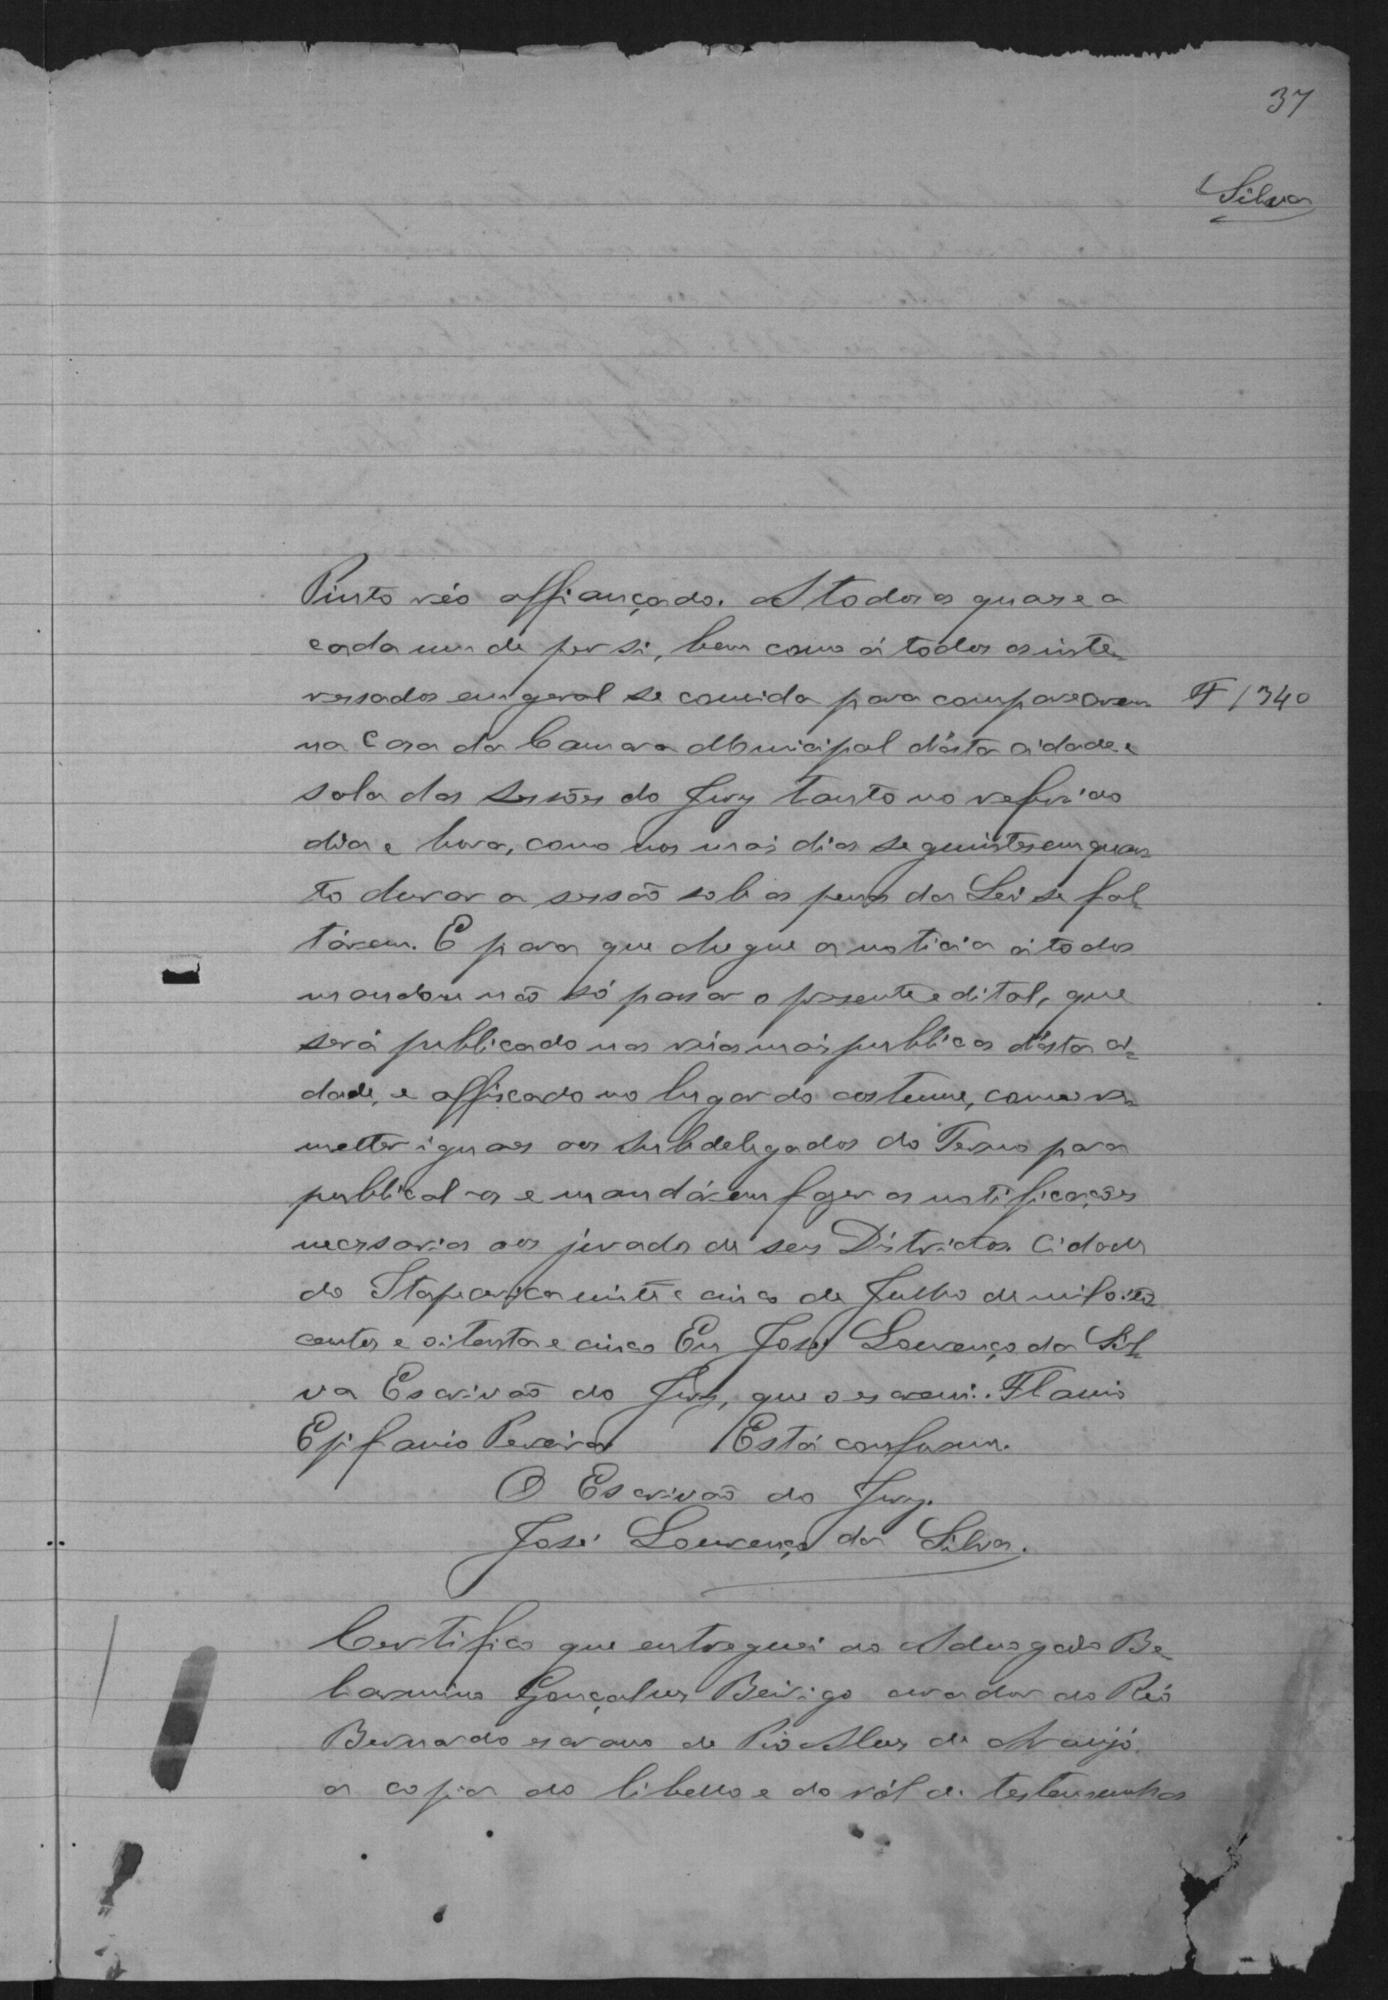 37
Silva
Pinto réo affiançado. A todos os quaes e a
cada um de per si, bem como á todos os inte-
ressados em geral se convida para comparecerem
F 1340
na Casa da Camara Municipal d'ésta cidade e
sala das sessões do Jury tanto no referido
dia e hora, como nos mais dias seguintes emquan-
to durar a sessão sob as penas da Lei se fal-
tárem. E para que chegue a noticia á todos
mandou não só passar o presente edital, que
será publicado nas vias mais publicas d'ésta ci-
dade, e affixado no lugar do costume, como re-
metter iguaes aos Subdelegados do Termo para
publical-os e mandárem fazer as notificações
necessarias aos jurados de seus Districtos. Cidade
de Itaparica vinte e cinco de Julho de mil oito
centos e oitenta e cinco Eu José Lourenço da Sil-
va Escrivão do Jury, que o escrevi. Flavio
Epifanio Pereira Está conforme.
O Escrivão do Jury.
José Lourenço da Silva.
Certifico que entreguei ao Advogado Be-
larmino Gonçalves Beirigo curador do Réo
Bernardo escravo de Pio Alves de Araújo,
a copia do libello e do ról de testemunhas